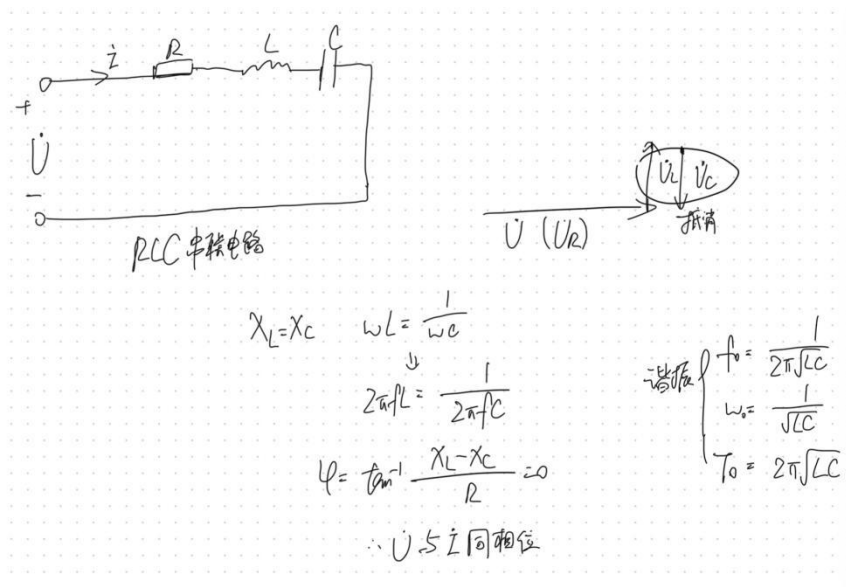 i R L C
+
U̇
-
RLC串联电路
U̇L U̇C
抵消
U̇ (U̇R)
XL=XC ωL= 1/ωC
⇓
2πfL= 1/2πfC
φ= tan⁻¹ XL-XC/R =0
∴ U̇与İ同相位
谐振{ f₀= 1/2π√LC
ω₀= 1/√LC
T₀= 2π√LC